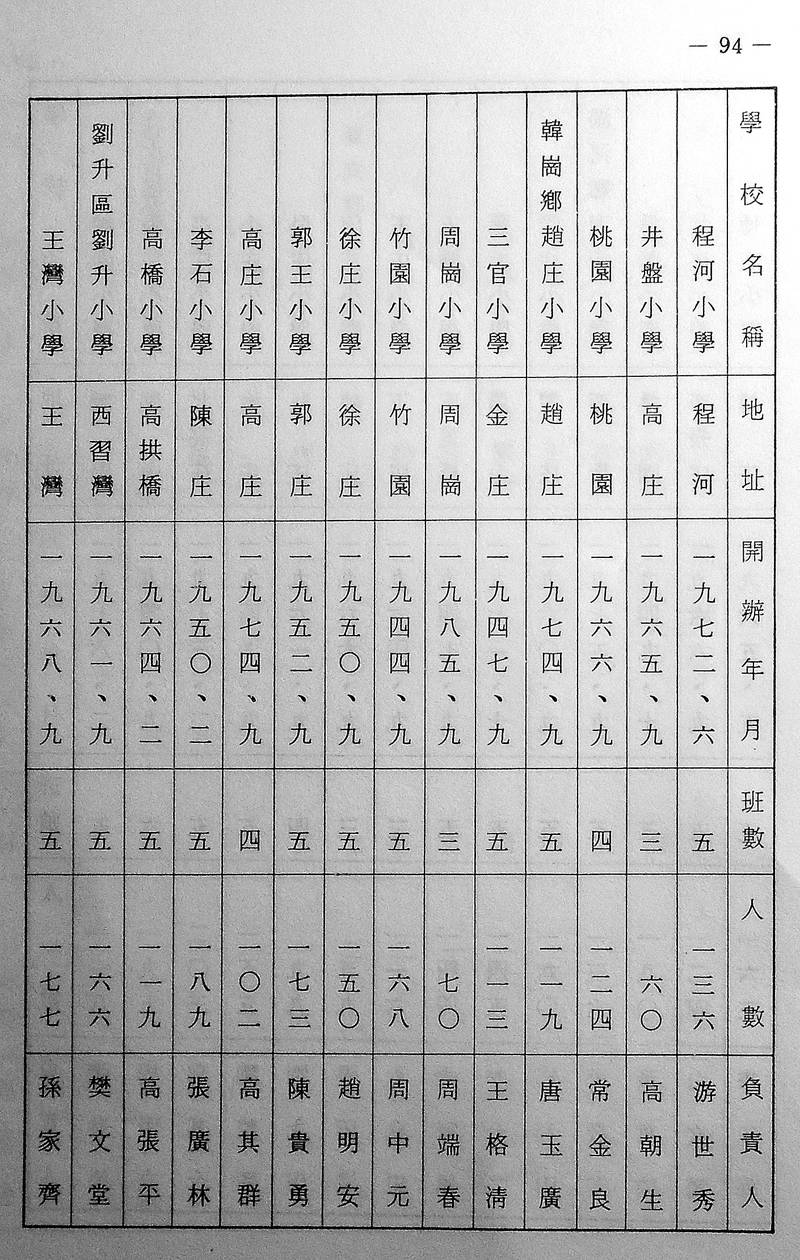 — 94 —
學校名稱 地址 開辦年月 班數 人數 負責人
程河小學 程河 一九七二、六 五 一三六 游世秀
井盤小學 高庄 一九六五、九 三 六〇 高朝生
桃園小學 桃園 一九六六、九 四 一二四 常金良
韓崗鄉趙庄小學 趙庄 一九七四、九 五 一一九 唐玉廣
三官小學 金庄 一九四七、九 五 一一三 王格清
周崗小學 周崗 一九八五、九 三 七〇 周端春
竹園小學 竹園 一九四四、九 五 一六八 周中元
徐庄小學 徐庄 一九五〇、九 五 一五〇 趙明安
郭王小學 郭庄 一九五二、九 五 一七三 陳貴勇
高庄小學 高庄 一九七四、九 四 一〇二 高其群
李石小學 陳庄 一九五〇、二 五 一八九 張廣林
高橋小學 高拱橋 一九六四、二 五 一一九 高張平
劉升區劉升小學 西習灣 一九六一、九 五 一六六 樊文堂
王灣小學 王灣 一九六八、九 五 一七七 孫家齊